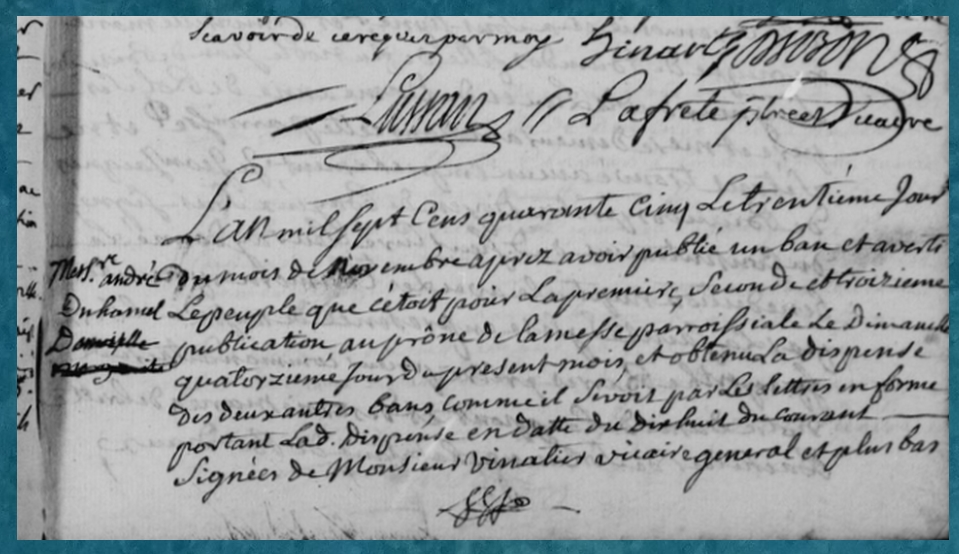 scavoir de ce requis par moy
Lafrete prêtre vicaire
L'an mil sept Cens quarante Cinq Le trentiéme Jour
Mess.re andré du mois de Novembre aprez avoir publié un ban et averti
Duhamel Le peuple que c'étoit pour La premiere, Seconde et troizieme
publication au prône de la messe parroissiale Le Dimanche
quatorzieme Jour du present mois, et obtenu La dispense
des deux autres bans comme il se voit par Les lettres en forme
portant Lad. Dispense en datte du dixhuit du courant
Signées de Monsieur Vinatier vicaire general et plus bas